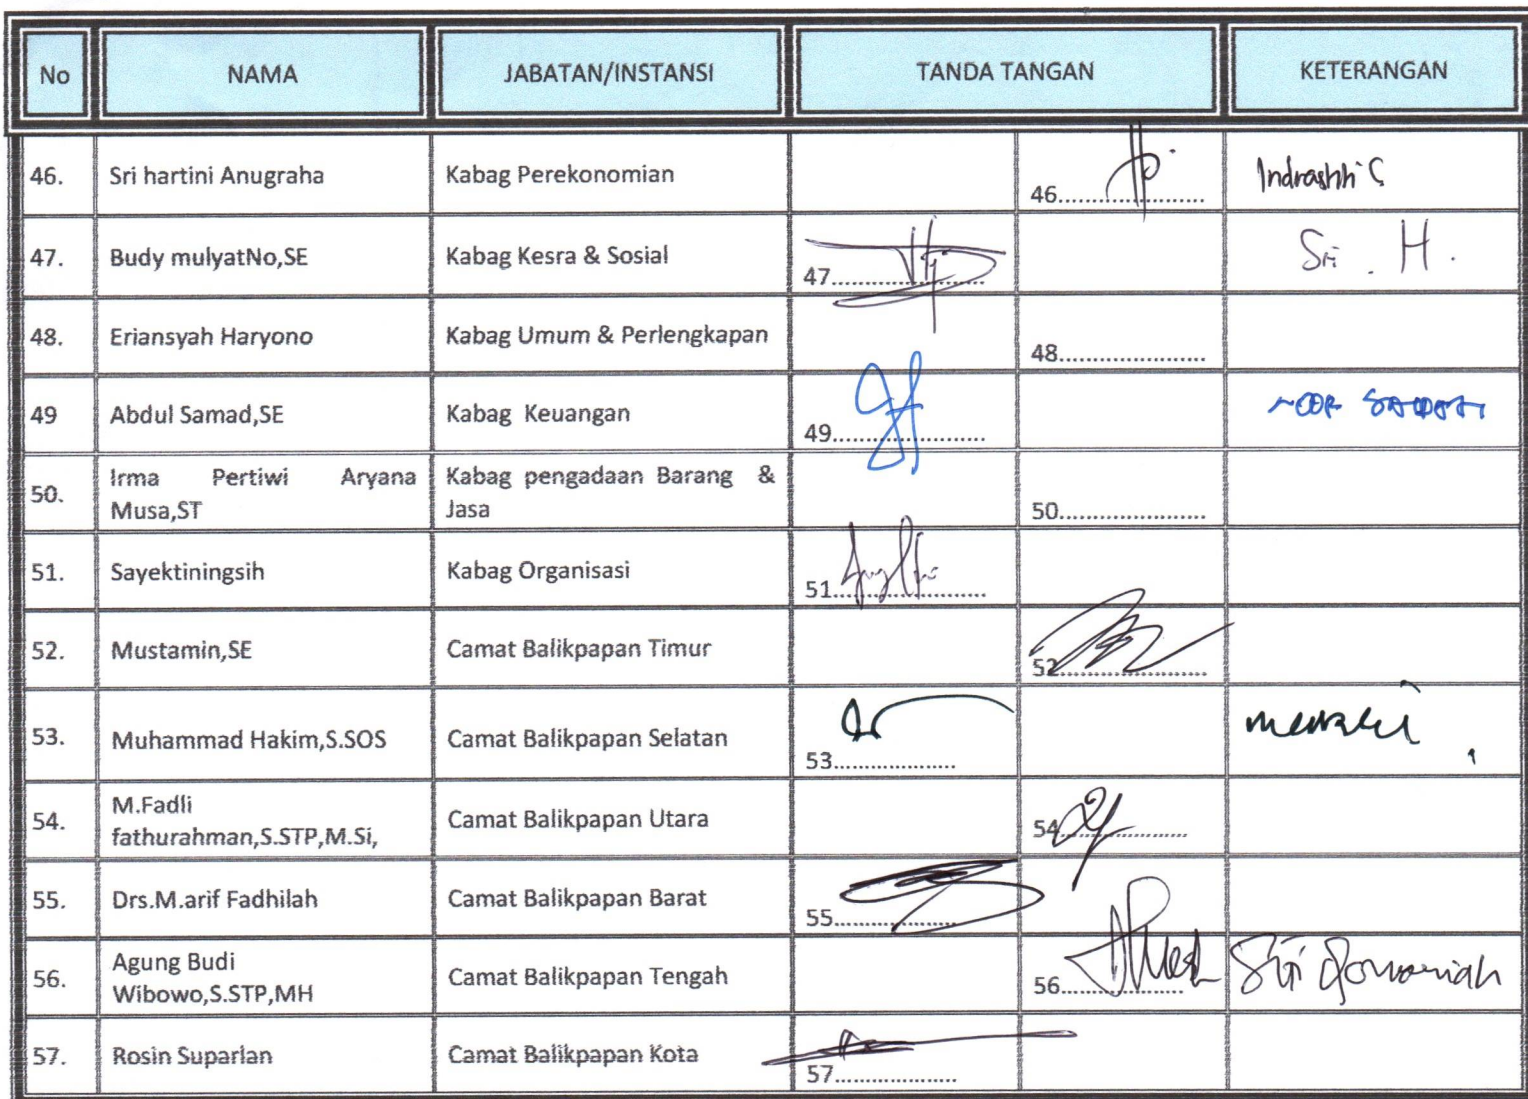 No NAMA JABATAN/INSTANSI TANDA TANGAN KETERANGAN
46. Sri hartini Anugraha Kabag Perekonomian 46..................... 
47. Budy mulyatNo,SE Kabag Kesra & Sosial 47...................... Sri . H .
48. Eriansyah Haryono Kabag Umum & Perlengkapan 48.....................
49 Abdul Samad,SE Kabag Keuangan 49......................
50. Irma Pertiwi Aryana
Musa,ST
Kabag pengadaan Barang &
Jasa
50.....................
51. Sayektiningsih Kabag Organisasi 51......................
52. Mustamin,SE Camat Balikpapan Timur 52.....................
53. Muhammad Hakim,S.SOS Camat Balikpapan Selatan 53..................
54. M.Fadli
fathurahman,S.STP,M.Si,
Camat Balikpapan Utara 54..................
55. Drs.M.arif Fadhilah Camat Balikpapan Barat 55..................
56. Agung Budi
Wibowo,S.STP,MH
Camat Balikpapan Tengah 56.................. Siti
57. Rosin Suparlan Camat Balikpapan Kota 57..................